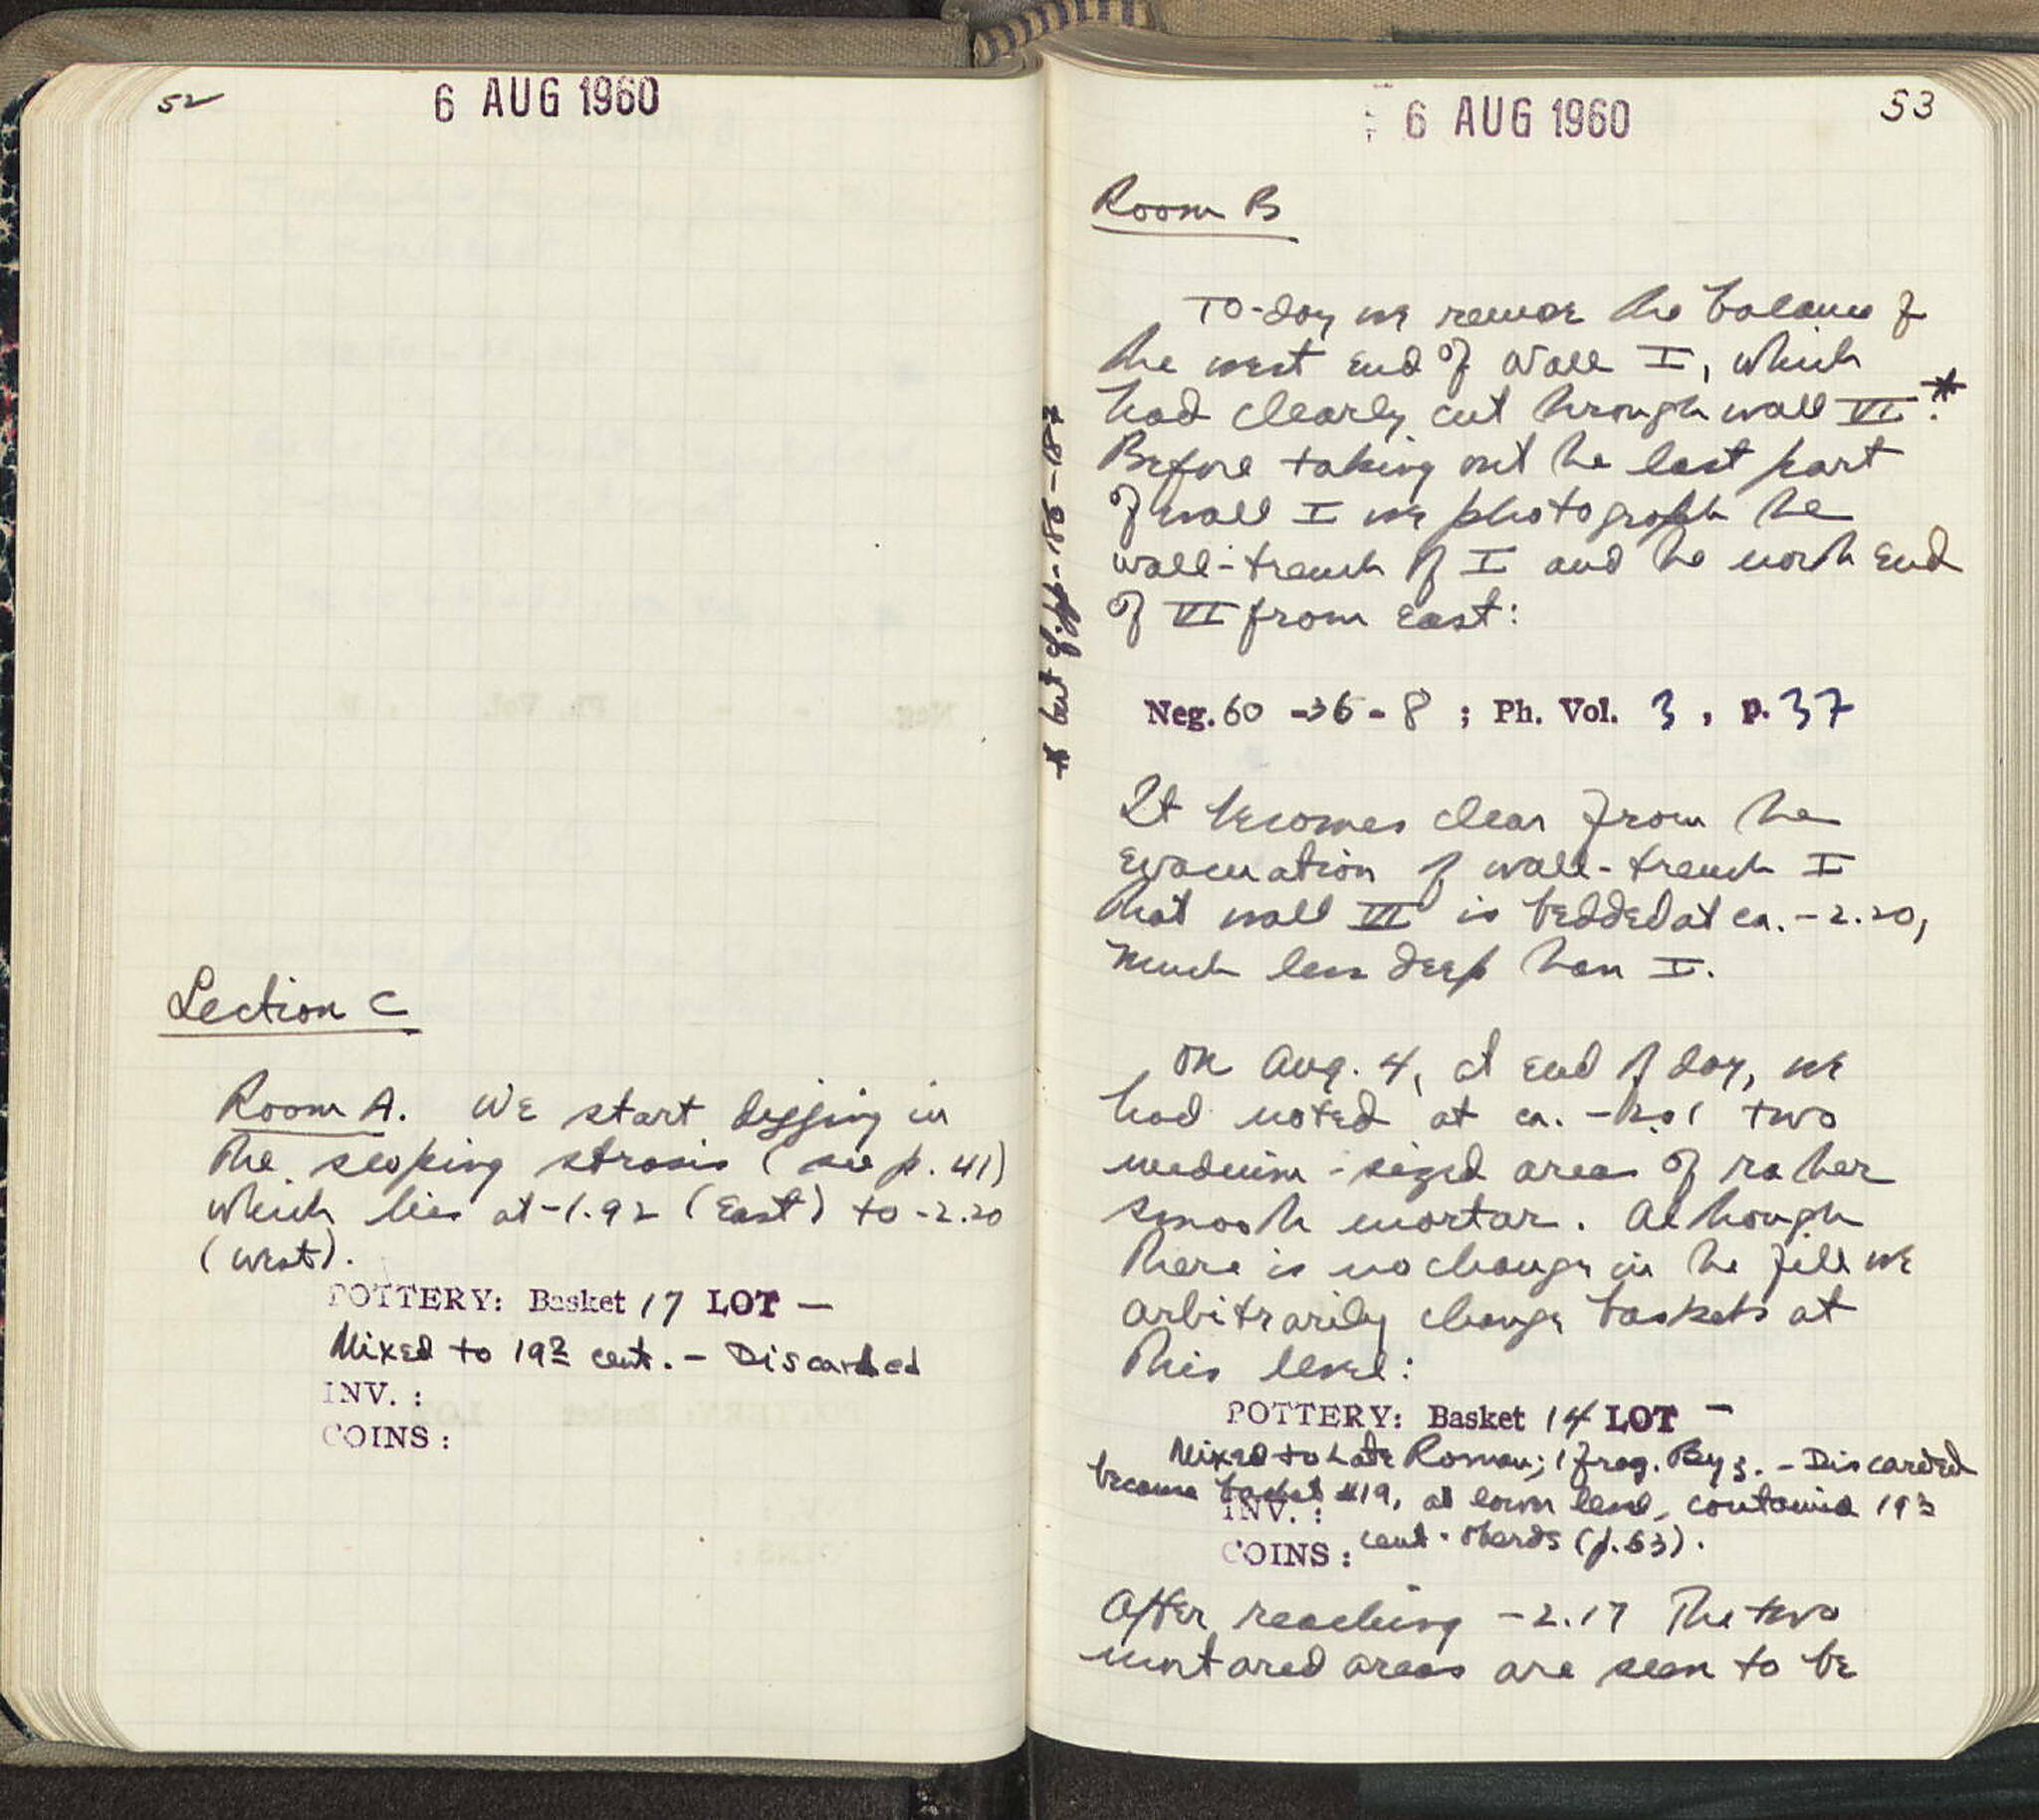 52
6 AUG 1960
Section C
Room A. We start digging in
the sloping strosis (see p. 41)
which lies at -1.92 (East) to -2.20
(West).
POTTERY: Basket 17 LOT —
Mixed to 19th cent. - Discarded
INV. :
COINS :
6 AUG 1960
53
Room B
To-day we remove the balance of
the west end of Wall I, which
had clearly cut through wall VI.*
Before taking out the last part
of wall I we photograph the
wall-trench of I and the north end
of VI from East:
* but cf. pp. 186-187
Neg. 60 -36- 8 ; Ph. Vol. 3 , p. 37
It becomes clear from the
evacuation of wall-trench I
that wall VI is bedded at ca. -2.20,
much less deep than I.
On Aug. 4, at end of day, we
had noted at ca. -2.01 two
medium-sized areas of rather
smooth mortar. Although
there is no change in the fill we
arbitrarily change baskets at
this level:
POTTERY: Basket 14 LOT -
Mixed to Late Roman; 1 frag. Byz. - Discarded
because basket #19, at lower level, contained 19th
INV. :
cent. sherds (p. 63).
COINS :
After reaching -2.17 the two
mortared areas are seen to be